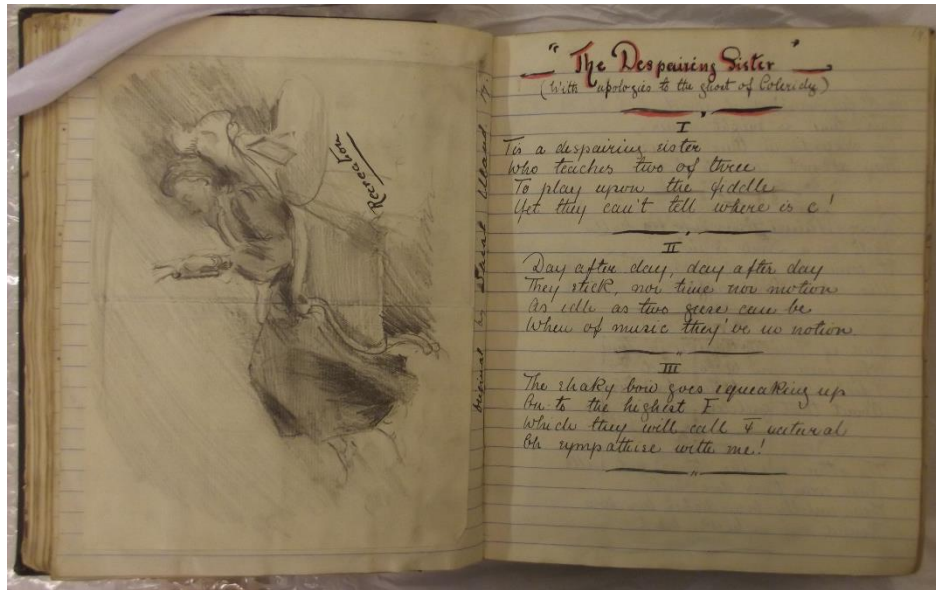 Recreation
original by
"The Despairing Sister"
(With apologies to the ghost of Coleridge)
I
Tis a despairing sister
Who teaches two of three
To play upon the fiddle
Yet they can't tell where is c!
II
Day after day, day after day
They stick, nor time nor motion
As idle as two geese can be
When of music they've no notion
III
The shaky bow goes squeaking up
On to the highest F
Which they will call F natural
Oh sympathise with me!